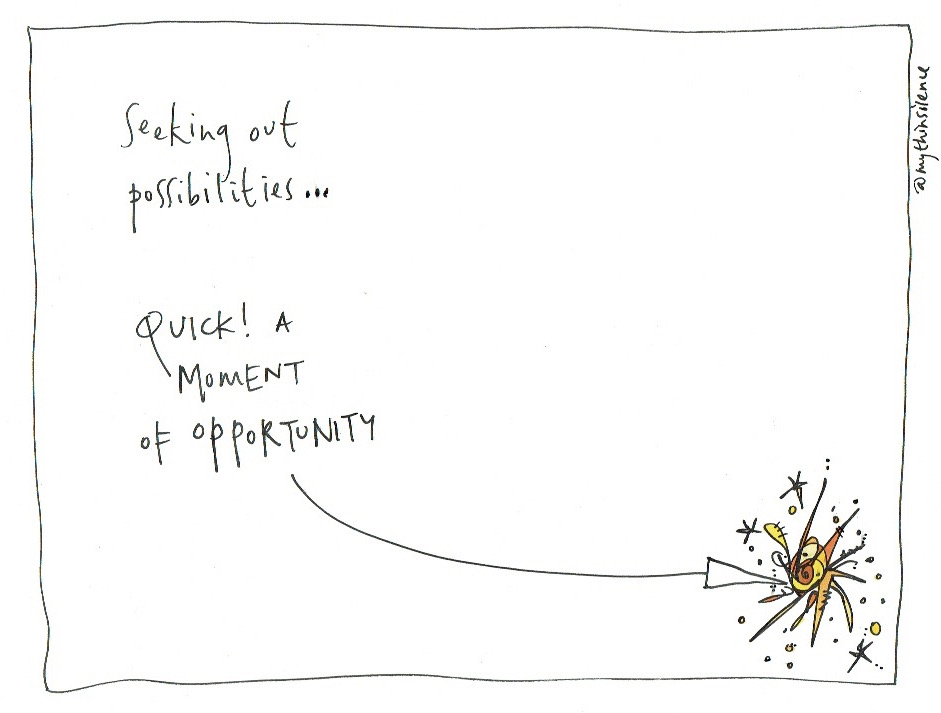 Seeking out
possibilities...
QUICK! A
MOMENT
OF OPPORTUNITY
@mythinsilence